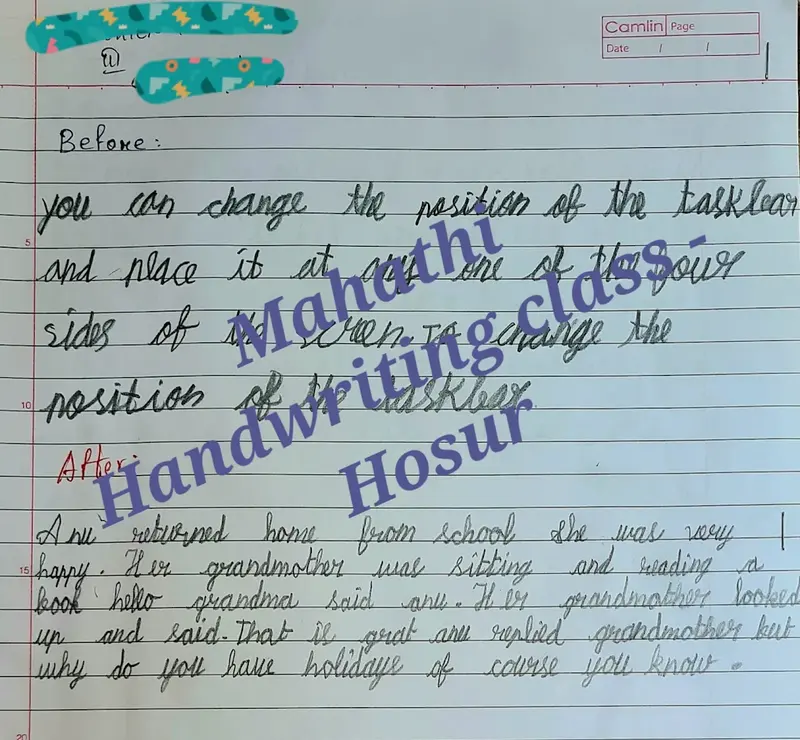 Camlin Page
Date / /
Before:
you can change the position of the taskbar
5
and place it at any one of the four
sides of the screen To change the
10
position of the taskbar.
After:
Anu returned home from school she was very
15
happy. Her grandmother was sitting and reading a
book hello grandma said anu. Her grandmother looked
up and said. That is grat anu replied grandmother but
why do you have holidays of course you know.
20
Mahathi
Handwriting class -
Hosur